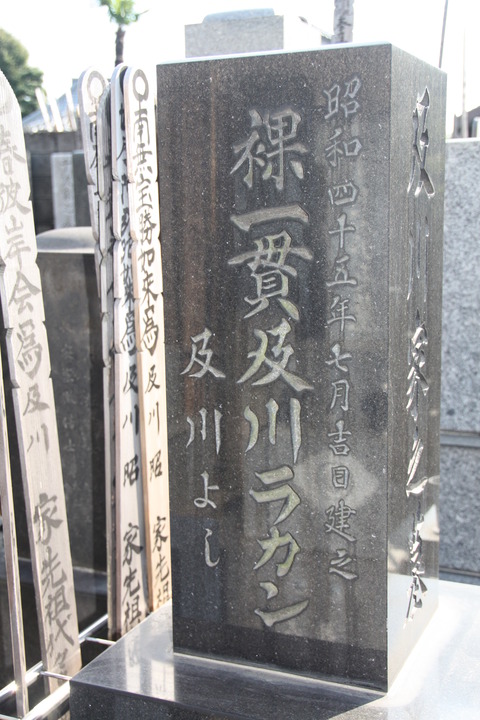 及川家之墓
昭和四十五年七月吉日建之
裸一貫及川ラカン
及川よし
南無宝勝如来為及川昭家先祖
為及川昭家先祖
春彼岸会為及川家先祖代